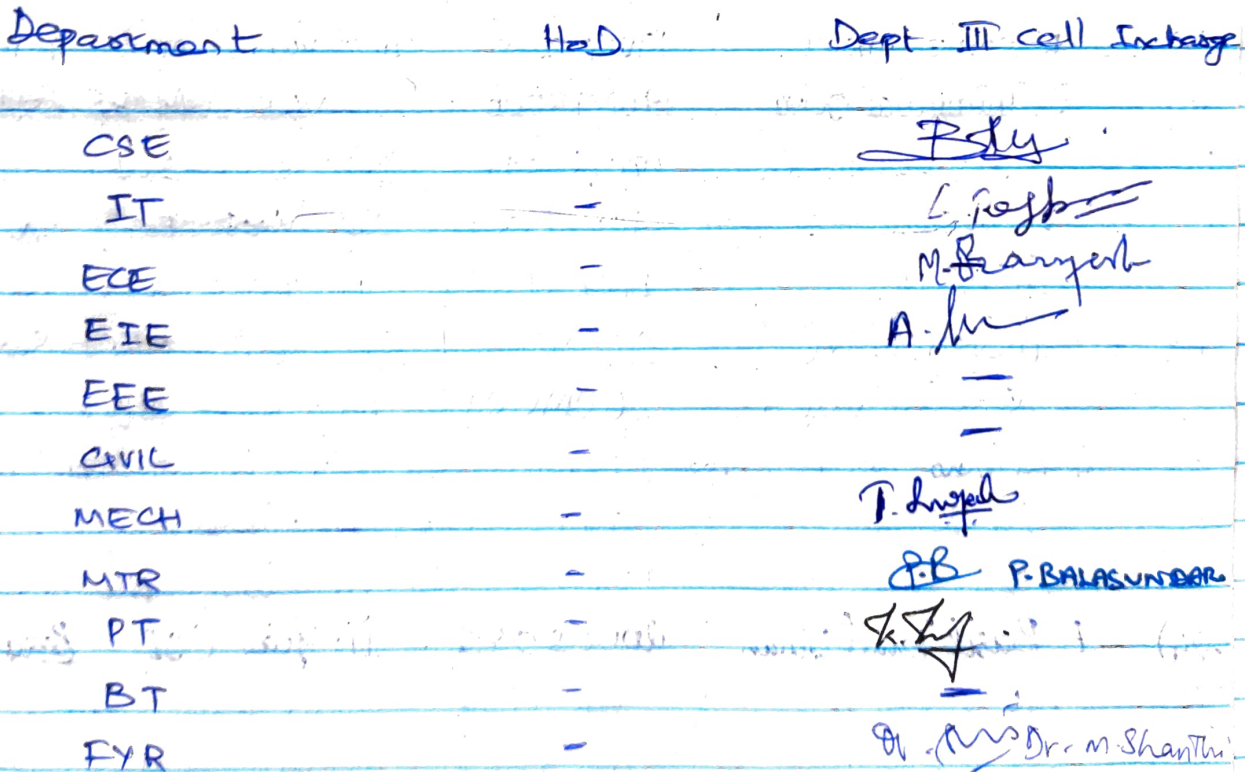 Department HoD Dept III Cell Incharge
CSE
IT -
ECE -
EIE - A.
EEE - -
CIVIL - -
MECH - T.
MTR - P.B P. BALASUNDAR
PT -
BT - -
FYR - Dr. M. Shanthi